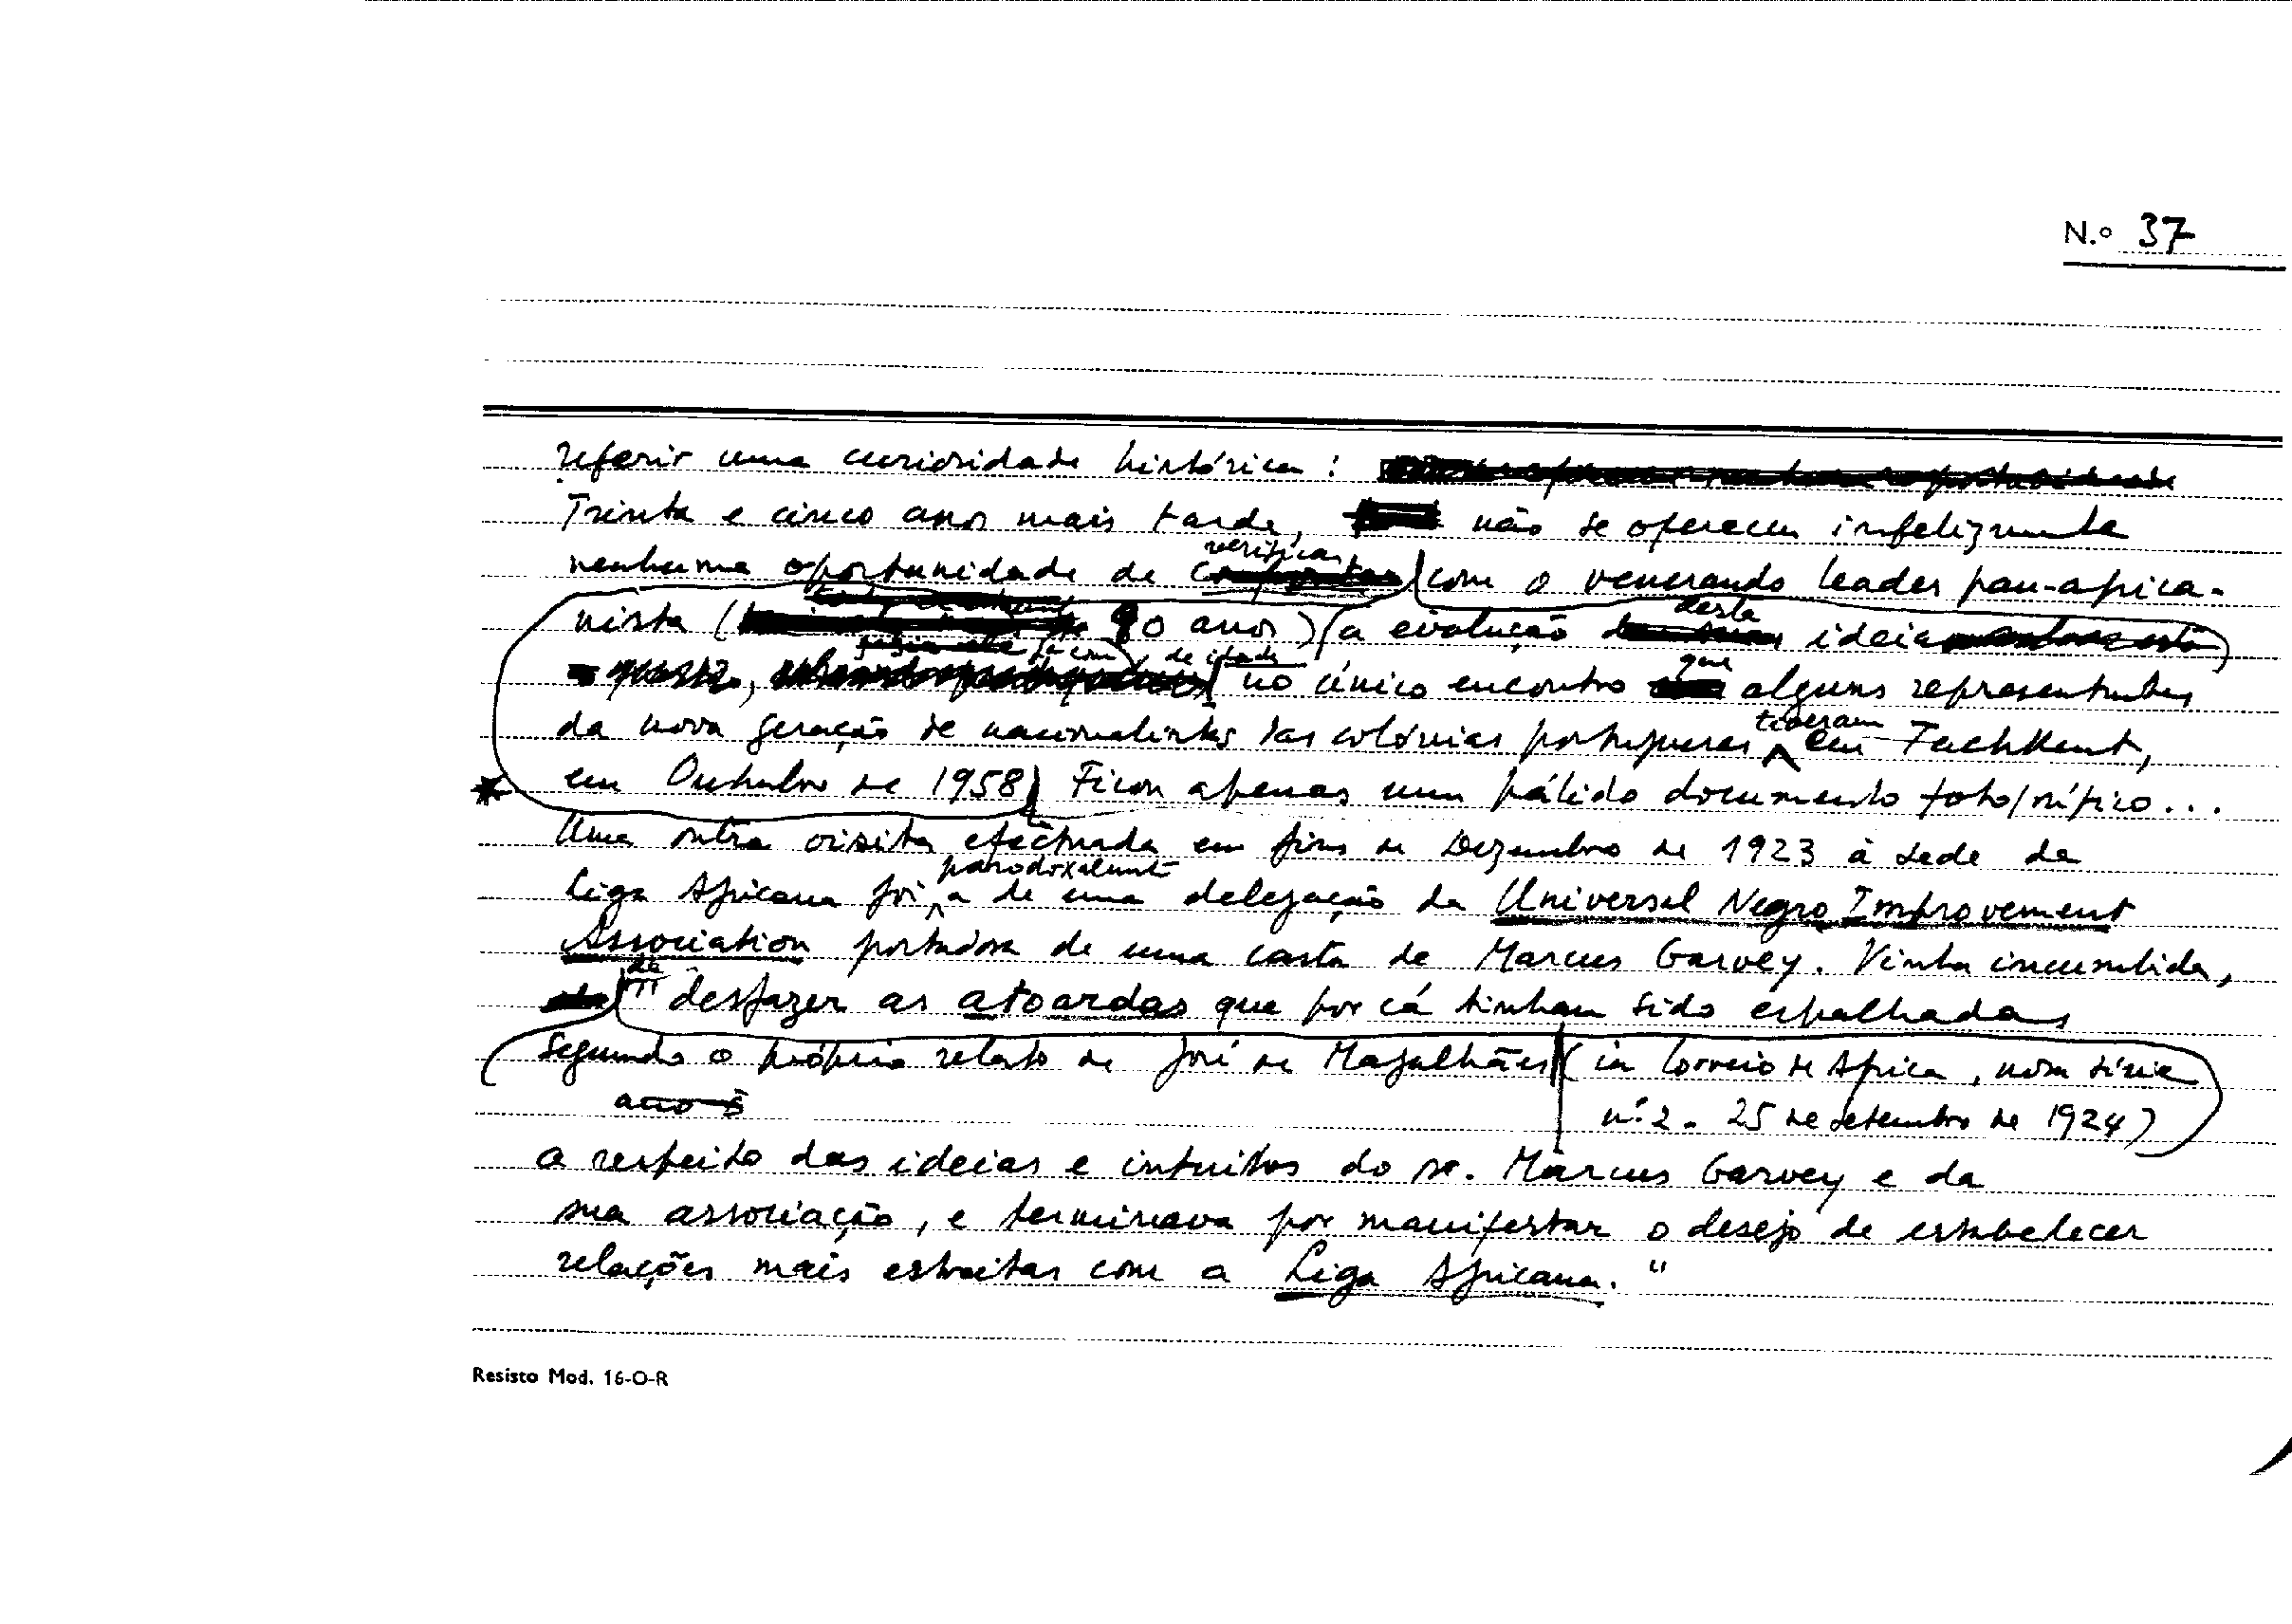 N.o 37
referir uma curiosidade histórica :
Trinta e cinco anos mais tarde, não se ofereceu infelizmente
verificar
nenhuma oportunidade de com o venerando leader pan-africa-
deste
nista ( 90 anos) (a evolução ideia
já com de idade que
no único encontro alguns representantes
tiveram
da nova geração de nacionalistas das colónias portuguesas em Tachkent,
* em Outubro de 1958) Ficou apenas um pálido documento fotográfico...
Uma outra visita efectuada em fins de Dezembro de 1923 à sede da
paradoxalmente
Liga Africana foi a de uma delegação da Universal Negro Improvement
Association portadora de uma carta de Marcus Garvey. Vinha incumbida,
de
desfazer as atoardas que por cá tinham sido espalhadas
Segundo o próprio relato de José de Magalhães (in Correio de Africa, nova série
ano 5
n.º 2 - 25 de setembro de 1924)
a respeito das ideias e intuitos do sr. Marcus Garvey e da
sua associação, e terminava por manifestar o desejo de estabelecer
relações mais estreitas com a Liga Africana."
Resisto Mod. 16-O-R